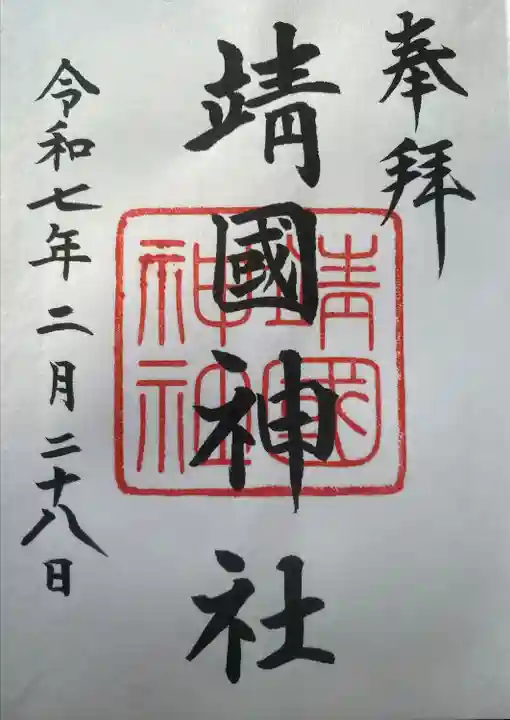 奉拜
靖國神社
靖國
神社
令和七年二月二十八日